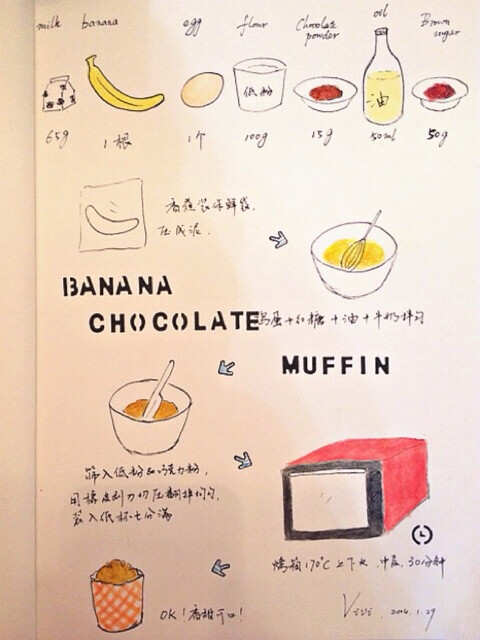 milk banana egg flour Chocolate powder oil Brown sugar
低粉
油
65g 1根 1个 100g 15g 50ml 50g
香蕉装保鲜袋,
压成泥.
BANANA
CHOCOLATE
鸡蛋+红糖+油+牛奶拌匀
MUFFIN
筛入低粉和巧克力粉,
用橡皮刮刀切压翻拌均匀,
装入纸杯七分满
烤箱170°C上下火.中层.30分钟
OK!香甜可口!
Vivi. 2016.1.29